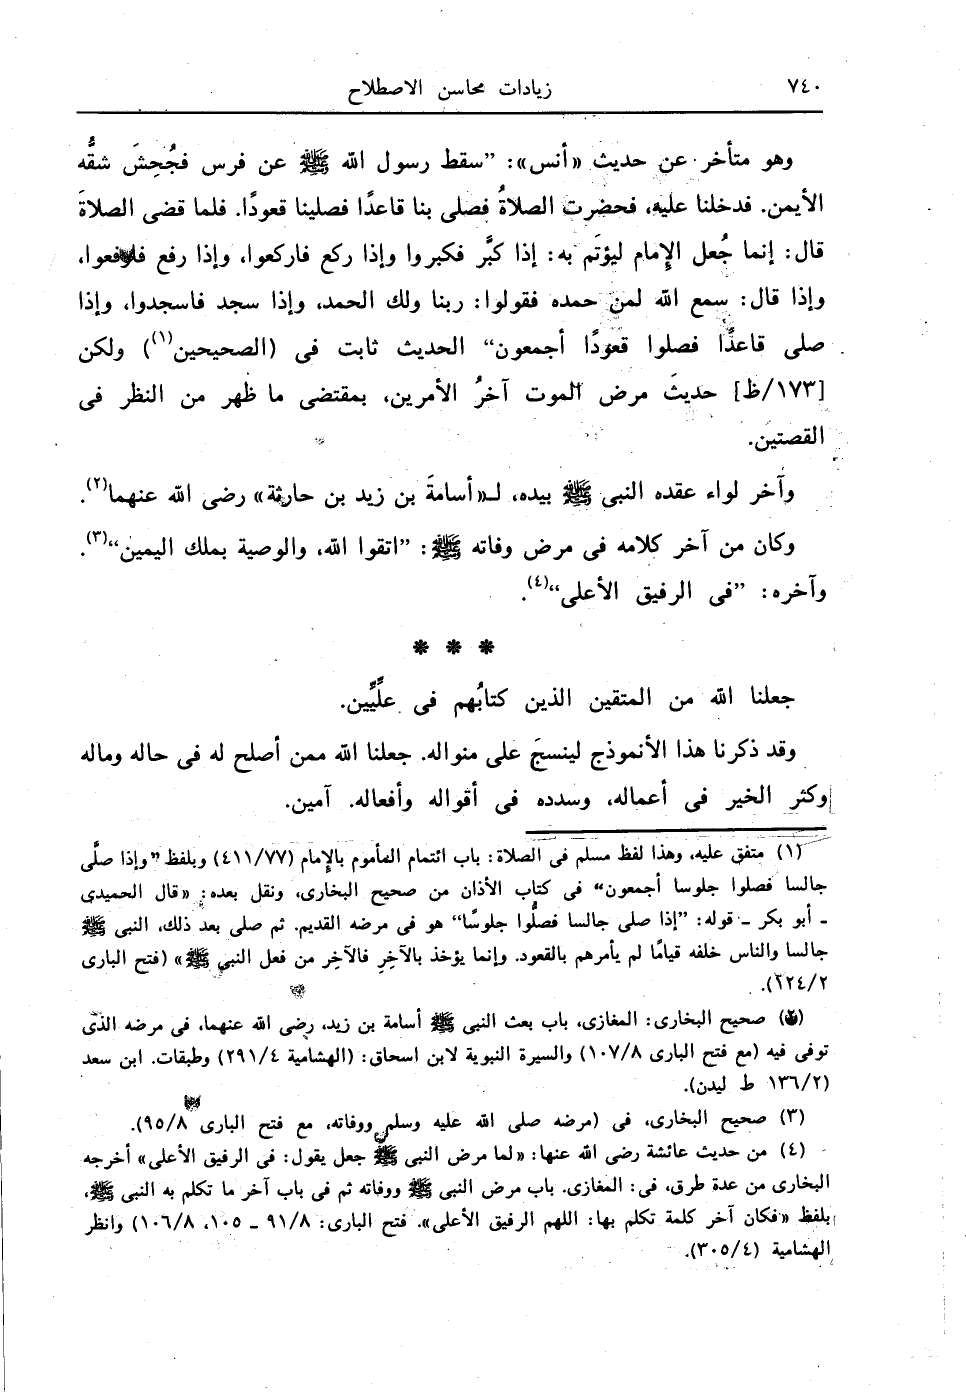 ٧٤٠ زيادات محاسن الاصطلاح
وهو متأخر عن حديث «أنس»: ”سقط رسول الله ﷺ عن فرس فجُحِشَ شقُّه
الأيمن. فدخلنا عليه، فحضرت الصلاةُ فصلى بنا قاعدًا فصلينا قعودًا. فلما قضى الصلاةَ
قال: إنما جُعل الإمام ليؤتَم به: إذا كبَّر فكبروا وإذا ركع فاركعوا، وإذا رفع فارفعوا،
وإذا قال: سمع الله لمن حمده فقولوا: ربنا ولك الحمد، وإذا سجد فاسجدوا، وإذا
صلى قاعدًا فصلوا قعودًا أجمعون“ الحديث ثابت فى (الصحيحين(١)) ولكن
[١٧٣/ظ] حديثَ مرض الموت آخرُ الأمرين، بمقتضى ما ظهر من النظر فى
القصتين.
وآخر لواء عقده النبى ﷺ بيده، لـ«أسامةَ بن زيد بن حارثة» رضى الله عنهما(٢).
وكان من آخر كلامه فى مرض وفاته ﷺ: ”اتقوا الله، والوصية بملك اليمين“(٣).
وآخره: ”فى الرفيق الأعلى“(٤).
* * *
جعلنا الله من المتقين الذين كتابُهم فى علِّيِّين.
وقد ذكرنا هذا الأنموذج لينسجَ على منواله. جعلنا الله ممن أصلح له فى حاله وماله
وكثر الخير فى أعماله، وسدده فى أقواله وأفعاله. آمين.
(١) متفق عليه، وهذا لفظ مسلم فى الصلاة: باب ائتمام المأموم بالإمام (٤١١/٧٧) وبلفظ ”وإذا صلَّى
جالسا فصلوا جلوسا أجمعون“ فى كتاب الأذان من صحيح البخارى، ونقل بعده: «قال الحميدى
ـ أبو بكر ـ قوله: ”إذا صلى جالسا فصلُّوا جلوسًا“ هو فى مرضه القديم. ثم صلى بعد ذلك، النبى ﷺ
جالسا والناس خلفه قيامًا لم يأمرهم بالقعود. وإنما يؤخذ بالآخِرِ فالآخِر من فعل النبى ﷺ» (فتح البارى
٢٢٤/٢).
(٢) صحيح البخارى: المغازى، باب بعث النبى ﷺ أسامة بن زيد، رضى الله عنهما، فى مرضه الذى
توفى فيه (مع فتح البارى ١٠٧/٨) والسيرة النبوية لابن اسحاق: (الهشامية ٢٩١/٤) وطبقات. ابن سعد
(١٣٦/٢ ط ليدن).
(٣) صحيح البخارى، فى (مرضه صلى الله عليه وسلم ووفاته، مع فتح البارى ٩٥/٨).
(٤) من حديث عائشة رضى الله عنها: «لما مرض النبى ﷺ جعل يقول: فى الرفيق الأعلى» أخرجه
البخارى من عدة طرق، فى: المغازى. باب مرض النبى ﷺ ووفاته ثم فى باب آخر ما تكلم به النبى ﷺ،
بلفظ «فكان آخر كلمة تكلم بها: اللهم الرفيق الأعلى». فتح البارى: ٩١/٨ ـ ١٠٥، ١٠٦/٨) وانظر
الهشامية (٣٠٥/٤).